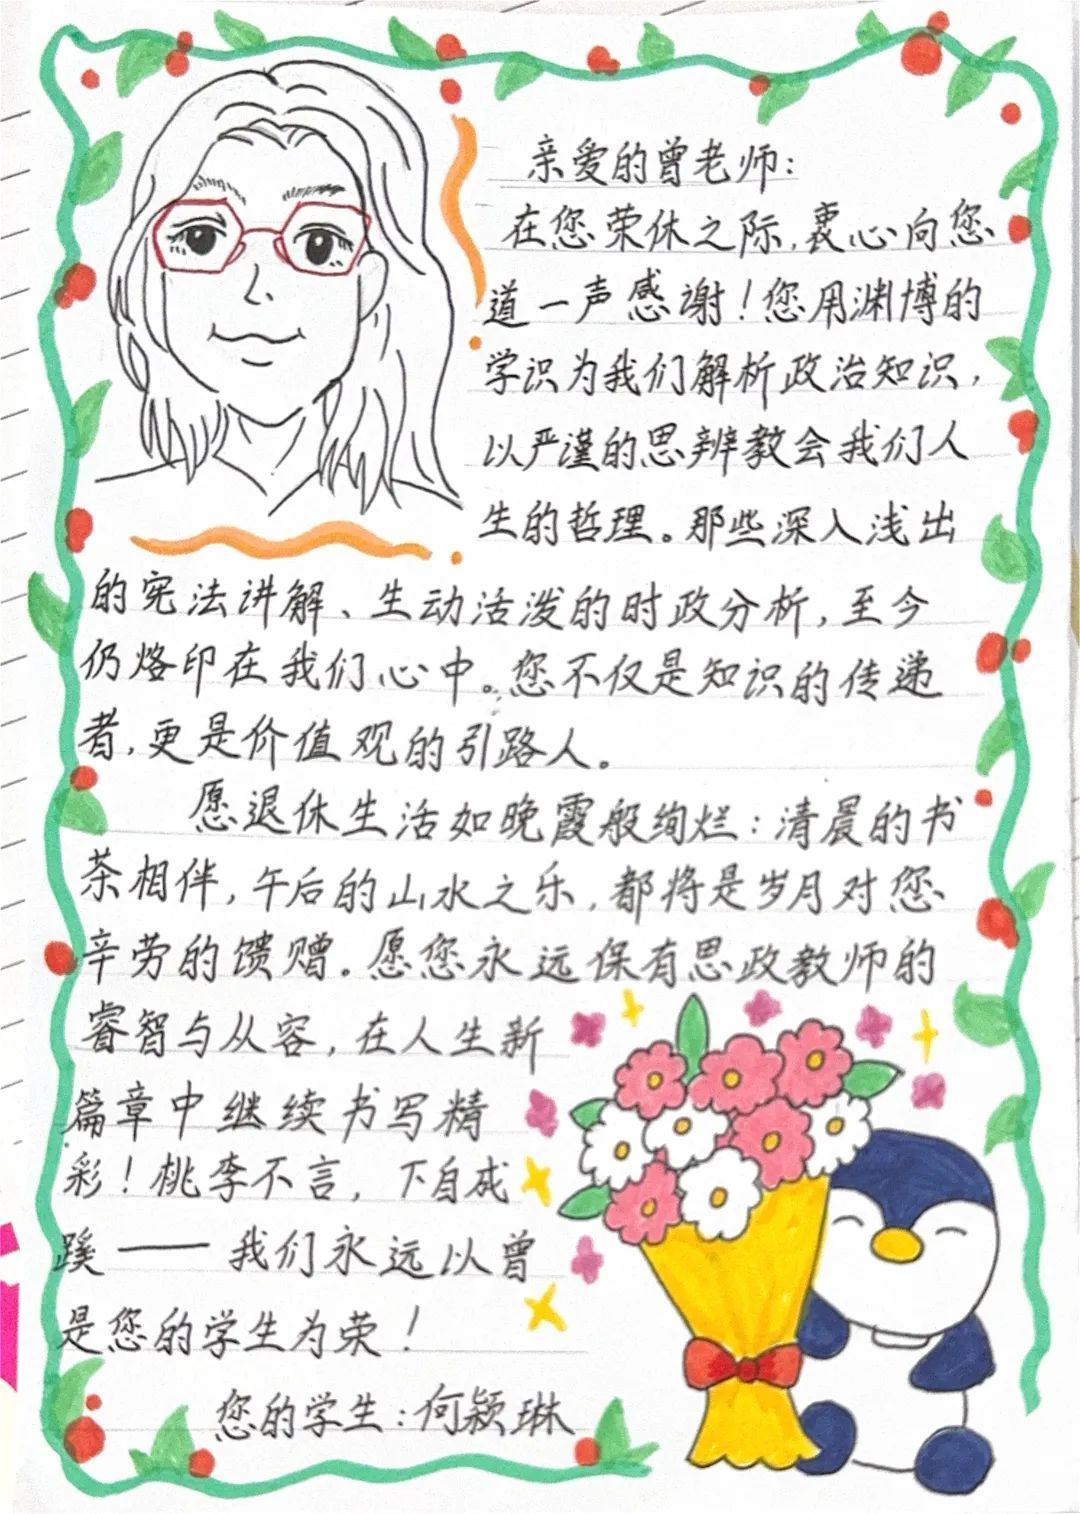 亲爱的曾老师：
在您荣休之际，衷心向您
道一声感谢！您用渊博的
学识为我们解析政治知识，
以严谨的思辨教会我们人
生的哲理。那些深入浅出
的宪法讲解、生动活泼的时政分析，至今
仍烙印在我们心中。您不仅是知识的传递
者，更是价值观的引路人。
愿退休生活如晚霞般绚烂：清晨的书
茶相伴，午后的山水之乐，都将是岁月对您
辛劳的馈赠。愿您永远保有思政教师的
睿智与从容，在人生新
篇章中继续书写精
彩！桃李不言，下自成
蹊——我们永远以曾
是您的学生为荣！
您的学生：何颖琳